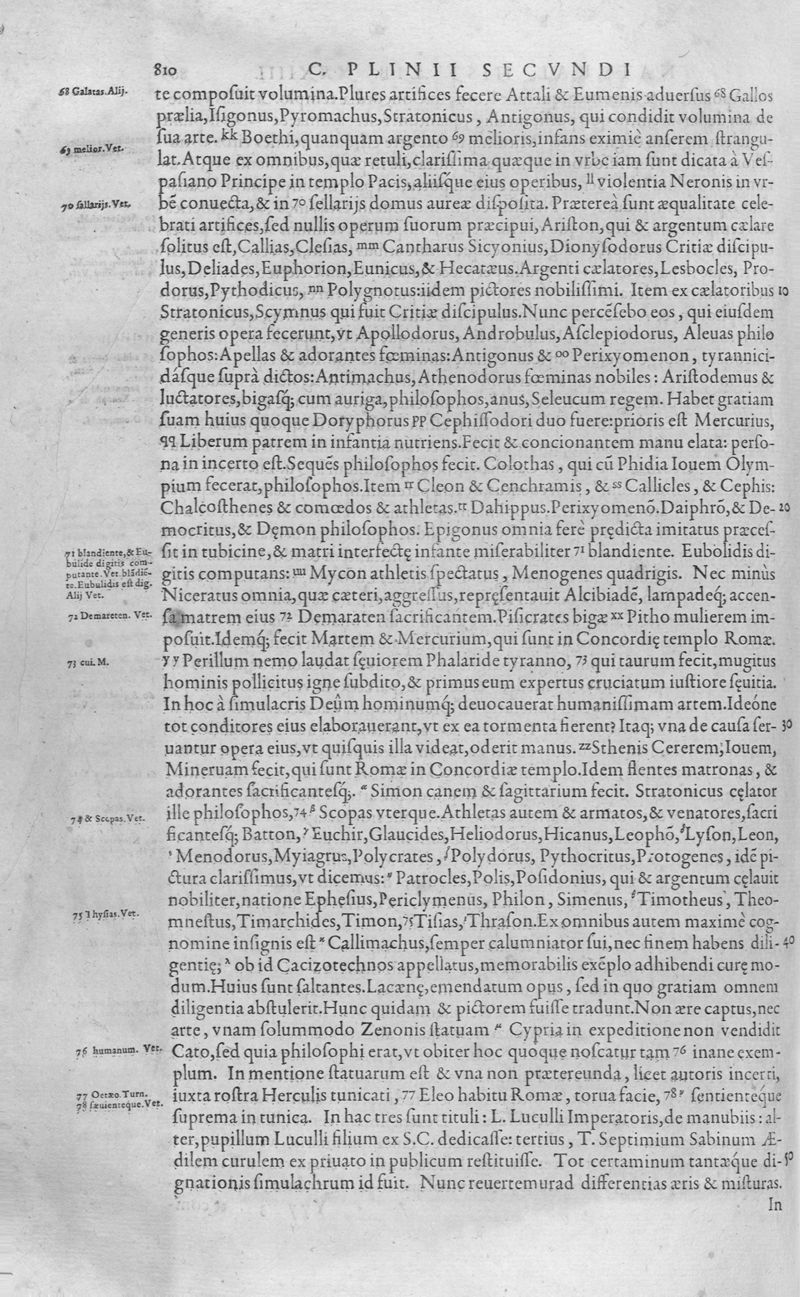 810 C. PLINII SECVNDI
68 Galatas.Alij.
te composuit volumina.Plures artifices fecere Attali & Eumenis aduersus 68 Gallos
prælia,Isigonus,Pyromachus,Stratonicus, Antigonus, qui condidit volumina de
sua arte. kk Boethi,quanquam argento 69 melioris,infans eximiè anserem strangu-
69 melior.Vet.
lat.Atque ex omnibus,quæ retuli,clarissima quæque in vrbe iam sunt dicata à Ves-
pasiano Principe in templo Pacis,aliisque eius operibus, ll violentia Neronis in vr-
70 sallarijs.Vet.
bē conuecta,& in 70 sellarijs domus aureæ disposita. Prætereà sunt æqualitate cele-
brati artifices,sed nullis operum suorum præcipui, Ariston,qui & argentum cælare
solitus est,Callias,Clesias, mm Cantharus Sicyonius,Dionysodorus Critiæ discipu-
lus,Deliades,Euphorion,Eunicus,& Hecatæus.Argenti cælatores,Lesbocles, Pro-
dorus,Pythodicus, nn Polygnotus:iidem pictores nobilissimi. Item ex cælatoribus 10
Stratonicus,Scymnus qui fuit Critiæ discipulus.Nunc percēsebo eos, qui eiusdem
generis opera fecerunt,vt Apollodorus, Androbulus,Asclepiodorus, Aleuas philo
sophos:Apellas & adorantes fœminas:Antigonus & oo Perixyomenon, tyrannici-
dásque suprà dictos:Antimachus,Athenodorus fœminas nobiles: Aristodemus &
luctatores,bigasq; cum auriga,philosophos,anus,Seleucum regem. Habet gratiam
suam huius quoque Doryphorus pp Cephissodori duo fuere:prioris est Mercurius,
qq Liberum patrem in infantia nutriens.Fecit & concionantem manu elata: perso-
na in incerto est.Sequēs philosophos fecit. Colothas, qui cū Phidia Iouem Olym-
pium fecerat,philosophos.Item rr Cleon & Cenchramis, & ss Callicles, & Cephis:
Chalcosthenes & comœdos & athletas. tt Dahippus.Perixyomenō.Daiphrō,& De- 20
mocritus,& Dęmon philosophos. Epigonus omnia ferè prędicta imitatus præces-
71 blandiente,& Eu-
sit in tubicine,& matri interfectę infante miserabiliter 71 blandiente. Eubolidis di-
bulide digitis com-
putante.Vet.blādiē-
gitis computans: uu Mycon athletis spectatus, Menogenes quadrigis. Nec minùs
te.Eubulidis est dig.
Alij Vet.
Niceratus omnia,quæ cæteri,aggressus,repręsentauit Alcibiadē, lampadeq; accen-
72 Demareten. Vet.
sa matrem eius 72 Demaraten sacrificantem.Pisicrates bigæ xx Pitho mulierem im-
posuit.Idemq; fecit Martem & Mercurium,qui sunt in Concordię templo Romæ.
73 cui. M.
yy Perillum nemo laudat sęuiorem Phalaride tyranno, 73 qui taurum fecit,mugitus
hominis pollicitus igne subdito,& primus eum expertus cruciatum iustiore sęuitia.
In hoc à simulacris Deûm hominumq; deuocauerat humanissimam artem.Ideóne
tot conditores eius elaborauerant,vt ex ea tormenta fierent? Itaq; vna de causa ser- 30
uantur opera eius,vt quisquis illa videat,oderit manus. zz Sthenis Cererem;Iouem,
Mineruam fecit,qui sunt Romæ in Concordiæ templo.Idem flentes matronas, &
adorantes sacrificantesq;. α Simon canem & sagittarium fecit. Stratonicus cęlator
74 & Scopas.Vet.
ille philosophos,74 β Scopas vterque.Athletas autem & armatos,& venatores,sacri
ficantesq; Batton, γ Euchir,Glaucides,Heliodorus,Hicanus,Leophō, δ Lyson,Leon,
ε Menodorus,Myiagrus,Polycrates, ζ Polydorus, Pythocritus,Protogenes, idē pi-
ctura clarissimus,vt dicemus: η Patrocles,Polis,Posidonius, qui & argentum cęlauit
nobiliter,natione Ephęsius,Periclymenus, Philon, Simenus, θ Timotheus, Theo-
75 Thysias.Vet.
mnestus,Timarchides,Timon,75 Tisias, ι Thrason.Ex omnibus autem maximè cog-
nomine insignis est κ Callimachus,semper calumniator sui,nec finem habens dili- 40
gentię; λ ob id Cacizotechnos appellatus,memorabilis exēplo adhibendi curę mo-
dum.Huius sunt saltantes.Lacænę,emendatum opus, sed in quo gratiam omnem
diligentia abstulerit.Hunc quidam & pictorem fuisse tradunt.Non ære captus,nec
arte, vnam solummodo Zenonis statuam μ Cypria in expeditione non vendidit
76 humanum. Vet.
Cato,sed quia philosophi erat,vt obiter hoc quoque noscatur tam 76 inane exem-
plum. In mentione statuarum est & vna non prætereunda, licet autoris incerti,
77 Oetæo.Turn.
iuxta rostra Herculis tunicati, 77 Eleo habitu Romæ, torua facie, 78 ν sentienteque
78 sæuienteque.Vet.
suprema in tunica. In hac tres sunt tituli: L. Luculli Imperatoris,de manubiis: al-
ter,pupillum Luculli filium ex S.C. dedicasse: tertius, T. Septimium Sabinum Æ-
dilem curulem ex priuato in publicum restituisse. Tot certaminum tantæque di- 50
gnationis simulachrum id fuit. Nunc reuertemur ad differentias æris & misturas.
In